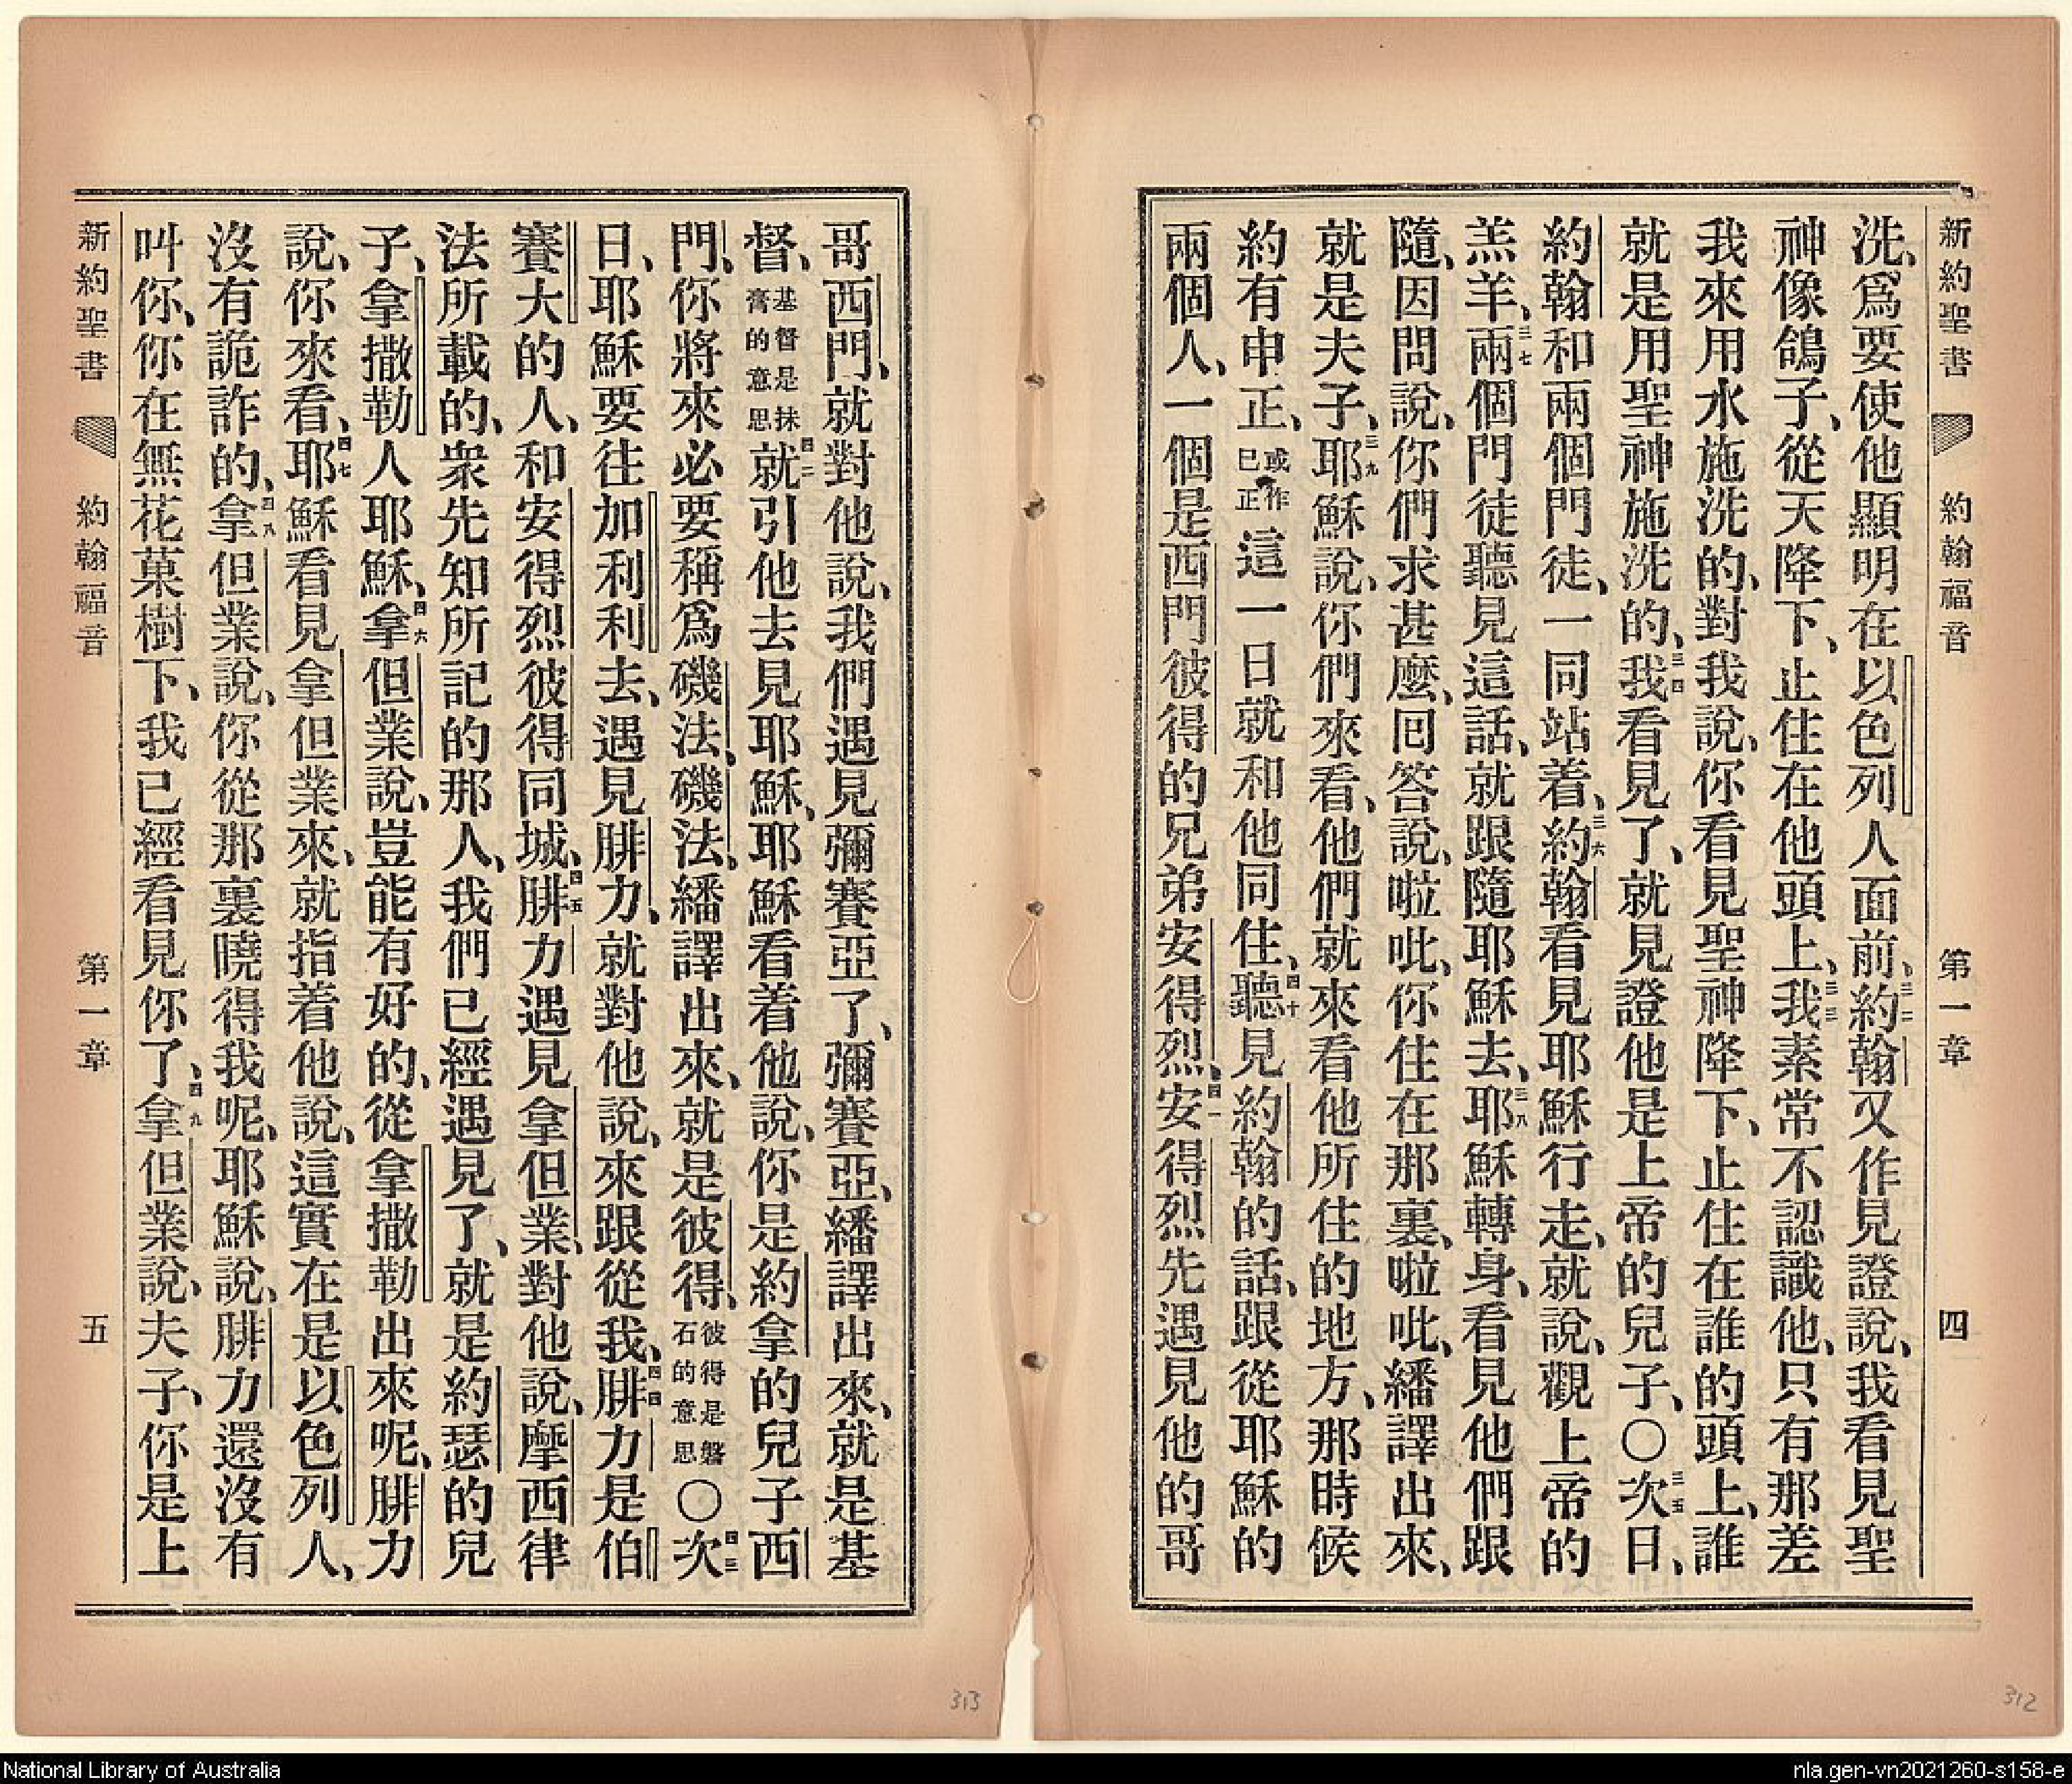 新約聖書 約翰福音 第一章 四
洗、爲要使他顯明在以色列人面前、三二約翰又作見證說、我看見聖
神像鴿子、從天降下、止住在他頭上、三三我素常不認識他、只有那差
我來用水施洗的、對我說、你看見聖神降下、止住在誰的頭上、誰
就是用聖神施洗的、三四我看見了、就見證他是上帝的兒子、〇三五次日、
約翰和兩個門徒、一同站着、三六約翰看見耶穌行走、就說、觀上帝的
羔羊、三七兩個門徒聽見這話、就跟隨耶穌去、三八耶穌轉身、看見他們跟
隨、因問說、你們求甚麼、回答說、啦吡、你住在那裏、啦吡、繙譯出來、
就是夫子、三九耶穌說、你們來看、他們就來看他所住的地方、那時候
約有申正、或作巳正這一日就和他同住、四十聽見約翰的話、跟從耶穌的
兩個人、一個是西門彼得的兄弟安得烈、四一安得烈先遇見他的哥
哥西門、就對他說、我們遇見彌賽亞了、彌賽亞、繙譯出來、就是基
督、基督是抹膏的意思四二就引他去見耶穌、耶穌看着他說、你是約拿的兒子西
門、你將來必要稱爲磯法、磯法、繙譯出來、就是彼得、彼得是磐石的意思〇四三次
日、耶穌要往加利利去、遇見腓力、就對他說、來跟從我、四四腓力是伯
賽大的人、和安得烈彼得同城、四五腓力遇見拿但業、對他說、摩西律
法所載的、衆先知所記的那人、我們已經遇見了、就是約瑟的兒
子、拿撒勒人耶穌、四六拿但業說、豈能有好的、從拿撒勒出來呢、腓力
說、你來看、四七耶穌看見拿但業來、就指着他說、這實在是以色列人、
沒有詭詐的、四八拿但業說、你從那裏曉得我呢、耶穌說、腓力還沒有
叫你、你在無花菓樹下、我已經看見你了、四九拿但業說、夫子、你是上
新約聖書 約翰福音 第一章 五
313
312
National Library of Australia
nla.gen-vn2021260-s158-e